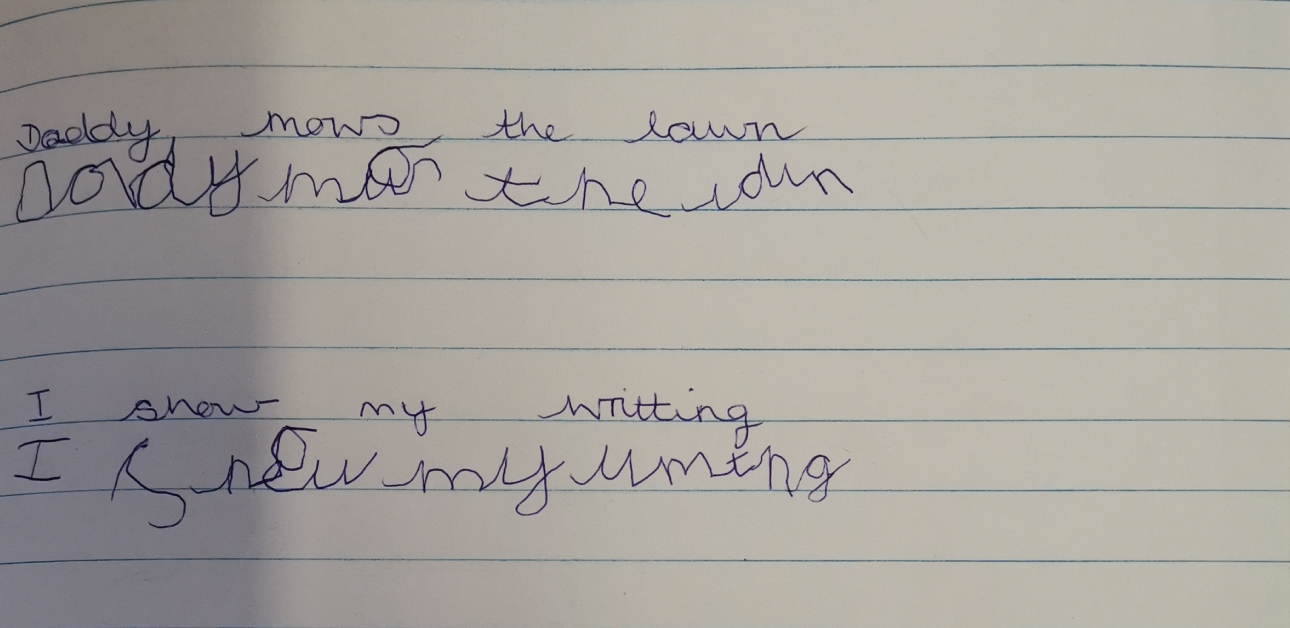 Daddy mows the lawn
Daddy mows the lawn
I show my writting
I show my writing